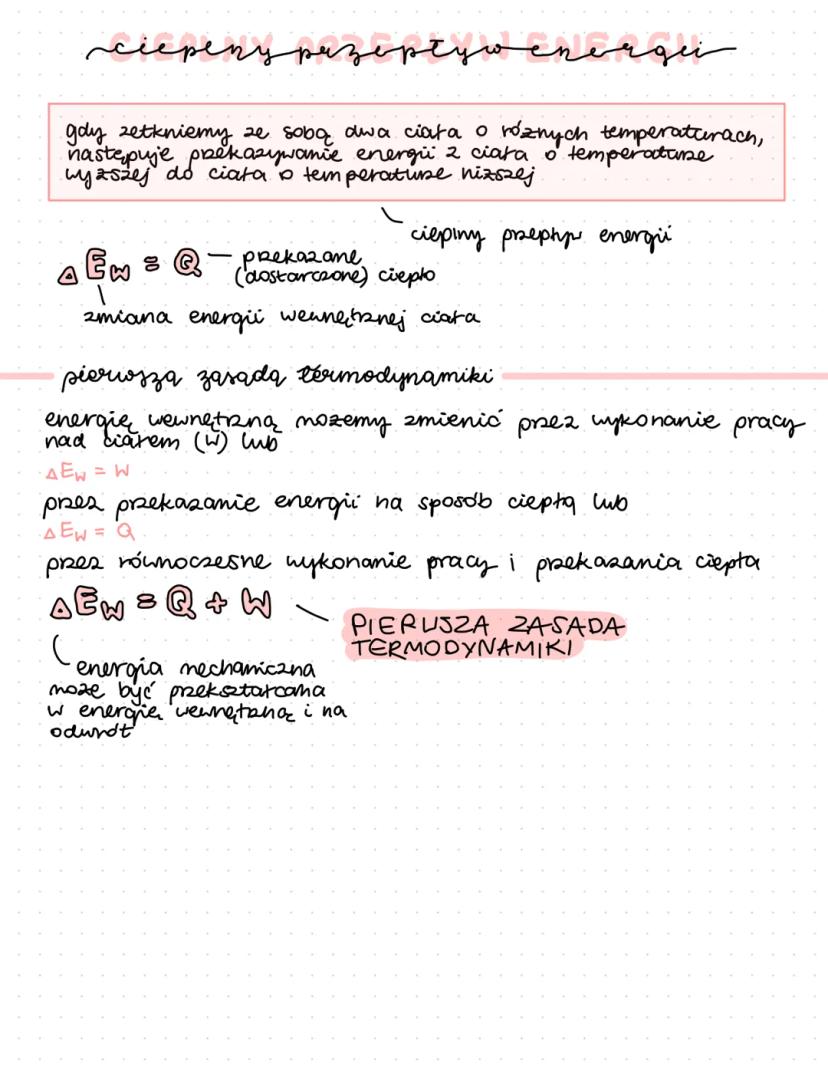 CIEPLNY PRZEPŁYW ENERGII
cieplny przepływ energii
gdy zetkniemy ze sobą dwa ciała o różnych temperaturach,
następuje przekazywanie energii z ciała o temperaturze
wyższej do ciała o temperaturze niższej
cieplny przepływ energii
ΔEw = Q
przekazane
(dostarczone) ciepło
zmiana energii wewnętrznej ciała
pierwsza zasada termodynamiki
energię wewnętrzną możemy zmienić przez wykonanie pracy
nad ciałem (W) lub
ΔEw = W
przez przekazanie energii na sposób ciepła lub
ΔEw = Q
przez równoczesne wykonanie pracy i przekazania ciepła
ΔEw = Q + W
PIERWSZA ZASADA
TERMODYNAMIKI
energia mechaniczna
może być przekształcana
w energię wewnętrzną i na
odwrót